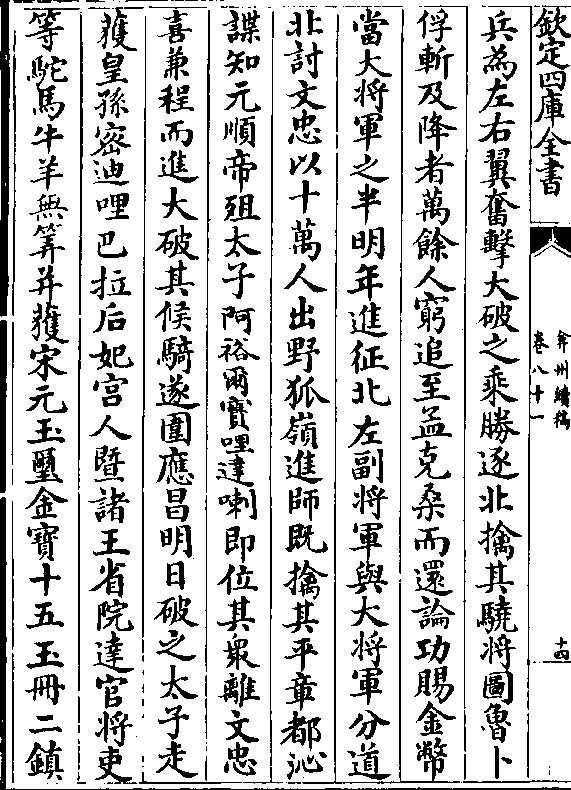 欽定四庫全書
弇州續稿
卷八十一
十四
兵為左右翼奮擊大破之乘勝逐北擒其驍將圖魯卜
俘斬及降者萬餘人窮追至孟克桑而還論功賜金幣
當大將軍之半明年進征北左副將軍與大將軍分道
北討文忠以十萬人出野狐嶺進師既擒其平章都沁
諜知元順帝殂太子阿裕爾寶哩達喇即位其衆離文忠
喜兼程而進大破其候騎遂圍應昌明日破之太子走
獲皇孫密迪哩巴拉后妃宮人暨諸王省院達官將吏
等駝馬牛羊無筭并獲宋元玉璽金寶十五玉冊二鎮